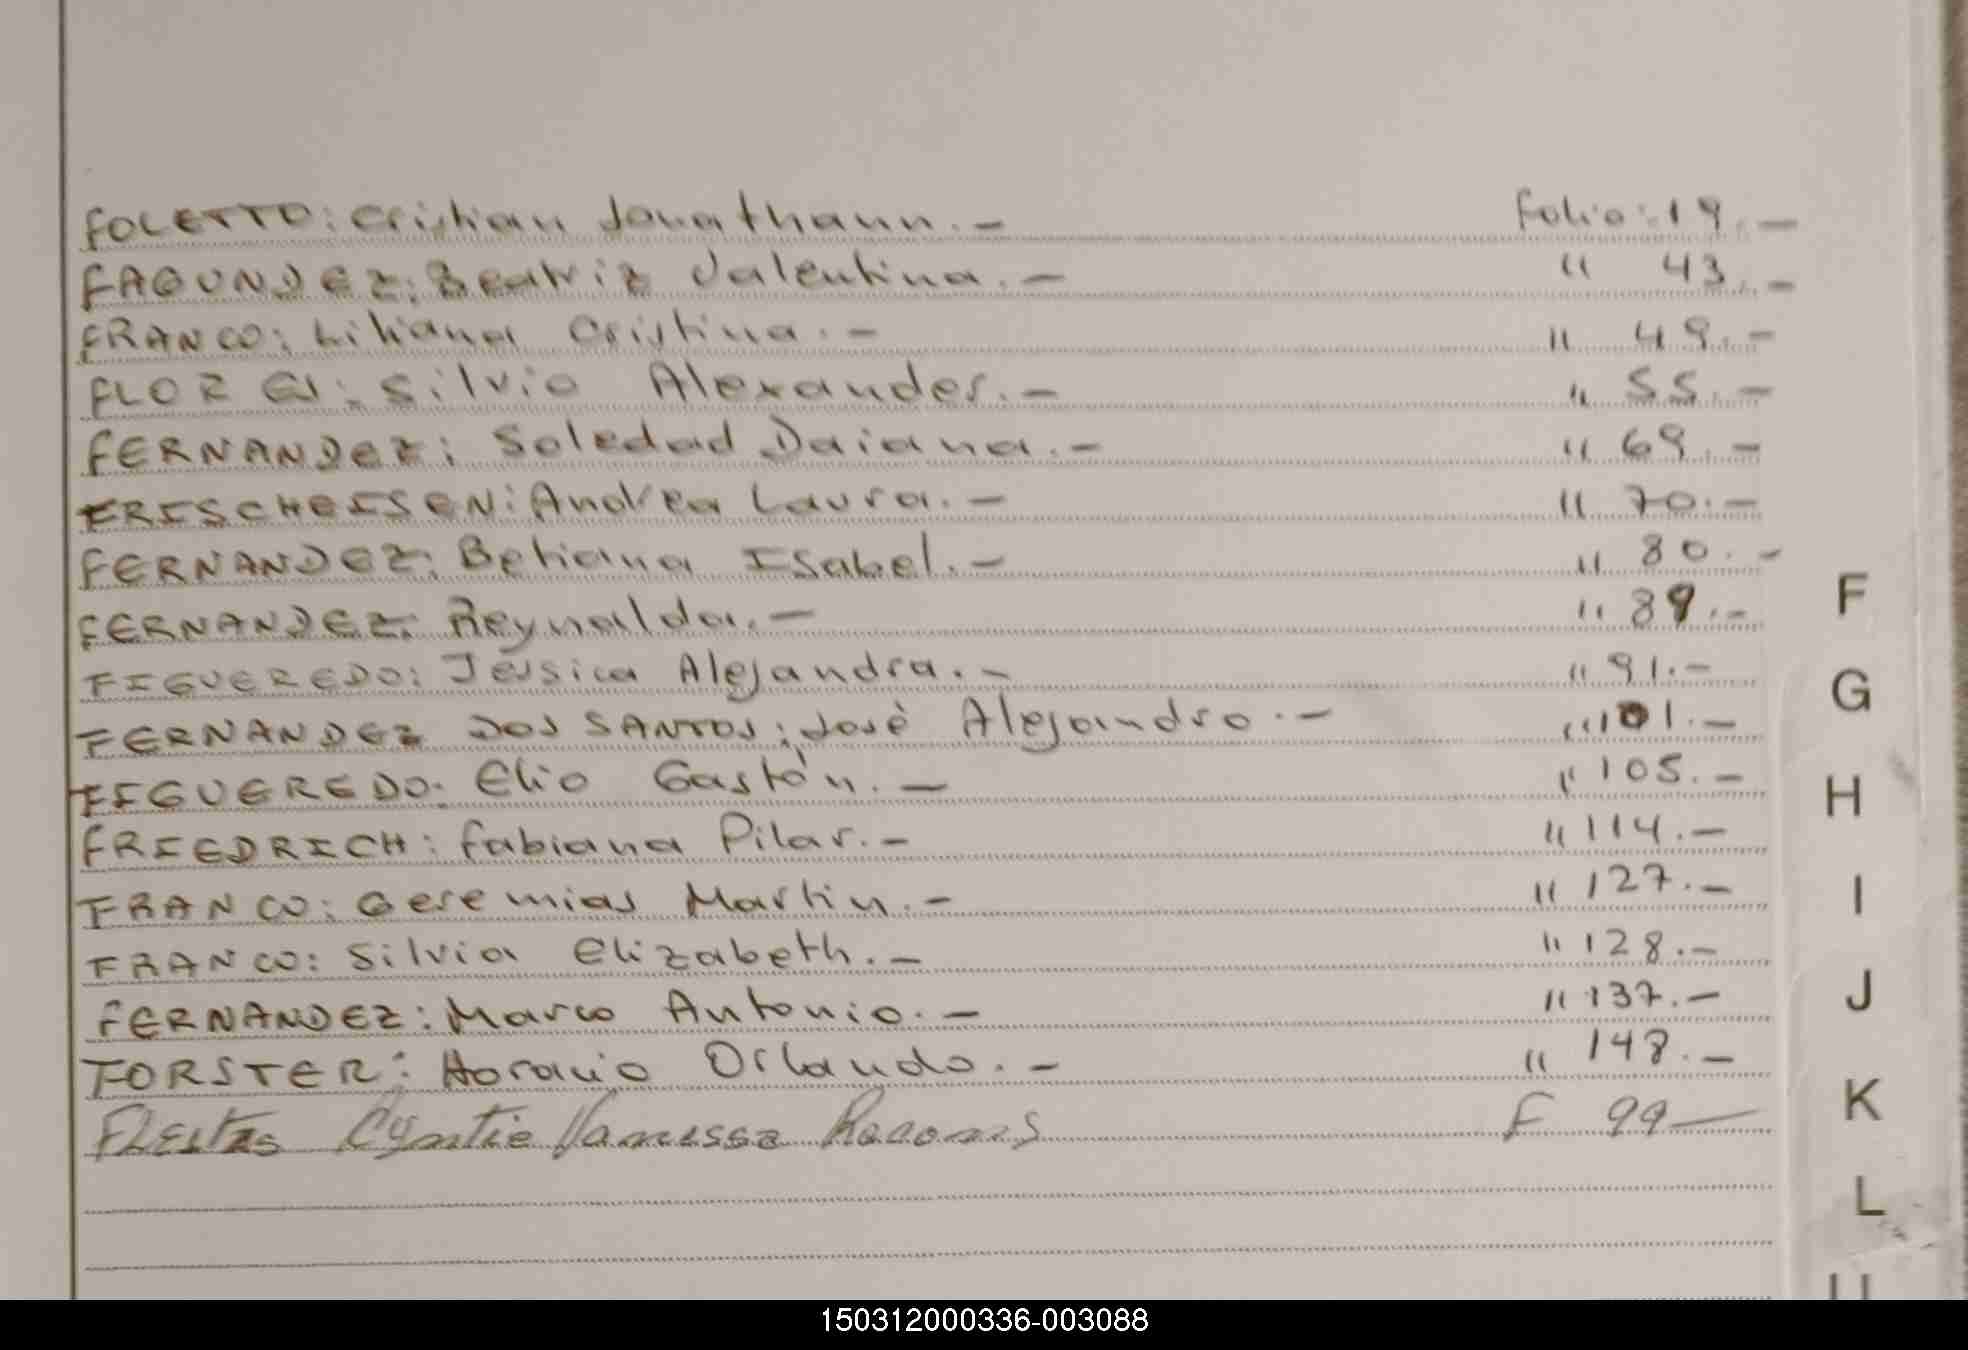 FOLETTO: Cristian Jonathann.- Folio: 19.-
FAGUNDEZ: Beatriz Valentina.- " 43.-
FRANCO: Liliana Cristina.- " 49.-
FLOR: Silvio Alexander.- " 55.-
FERNANDEZ: Soledad Daiana.- " 69.-
FRISCHEISEN: Andrea Laura.- " 70.-
FERNANDEZ: Betiana Isabel.- " 80.-
FERNANDEZ: Reynalda.- " 89.-
FIGUEREDO: Jessica Alejandra.- " 91.-
FERNANDEZ DOS SANTOS: José Alejandro.- " 101.-
FIGUEREDO: Elio Gastón.- " 105.-
FRIEDRICH: Fabiana Pilar.- " 114.-
FRANCO: Geremias Martin.- " 127.-
FRANCO: Silvia Elizabeth.- " 128.-
FERNANDEZ: Marco Antonio.- " 137.-
FORSTER: Horacio Orlando.- " 148.-
Fleitas Cyntia Vanessa F 99-
F
G
H
I
J
K
L
150312000336-003088